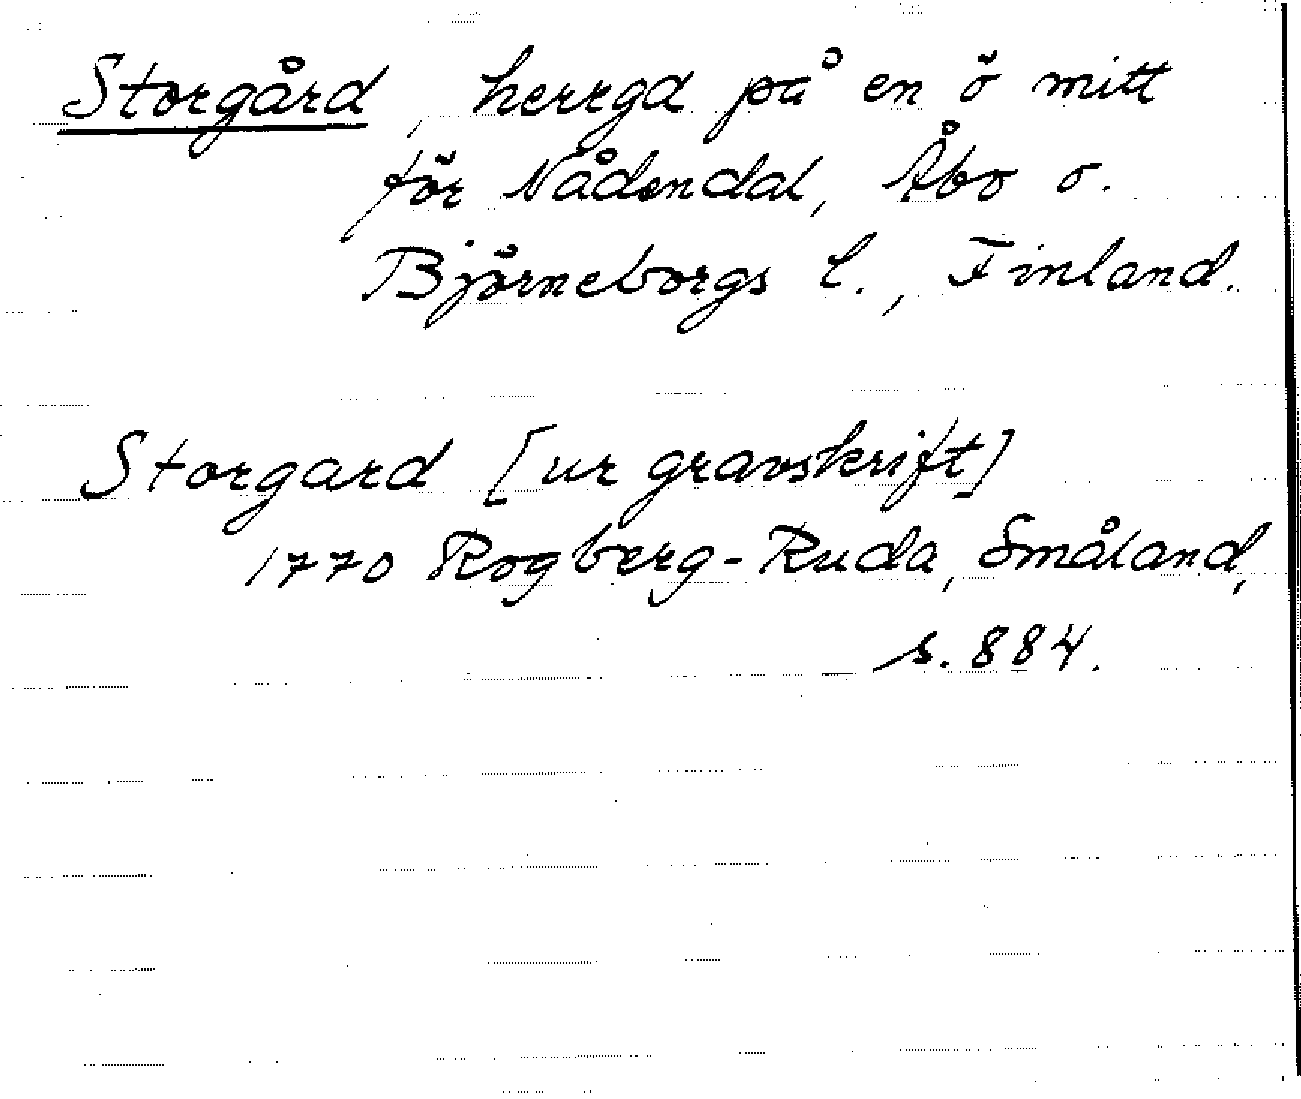 Storgård, herrgd på en ö mitt
för Nådendal, Åbo o.
Björneborgs l., Finland.
Storgard [ur gravskrift]
1770 Rogberg-Ruda, Småland,
s. 884.